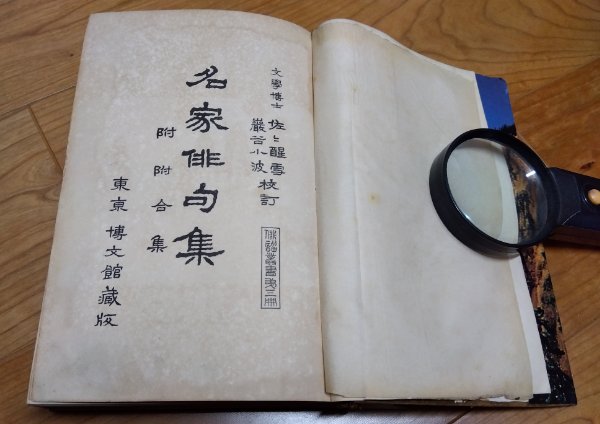 文學博士 佐々醒雪
巖谷小波 校訂
俳諧叢書第三冊
名家俳句集
附 附合集
東京 博文館藏版